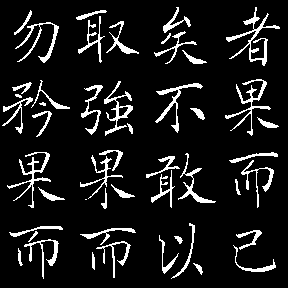 者果而已
矣不敢以
取強果而
勿矜果而